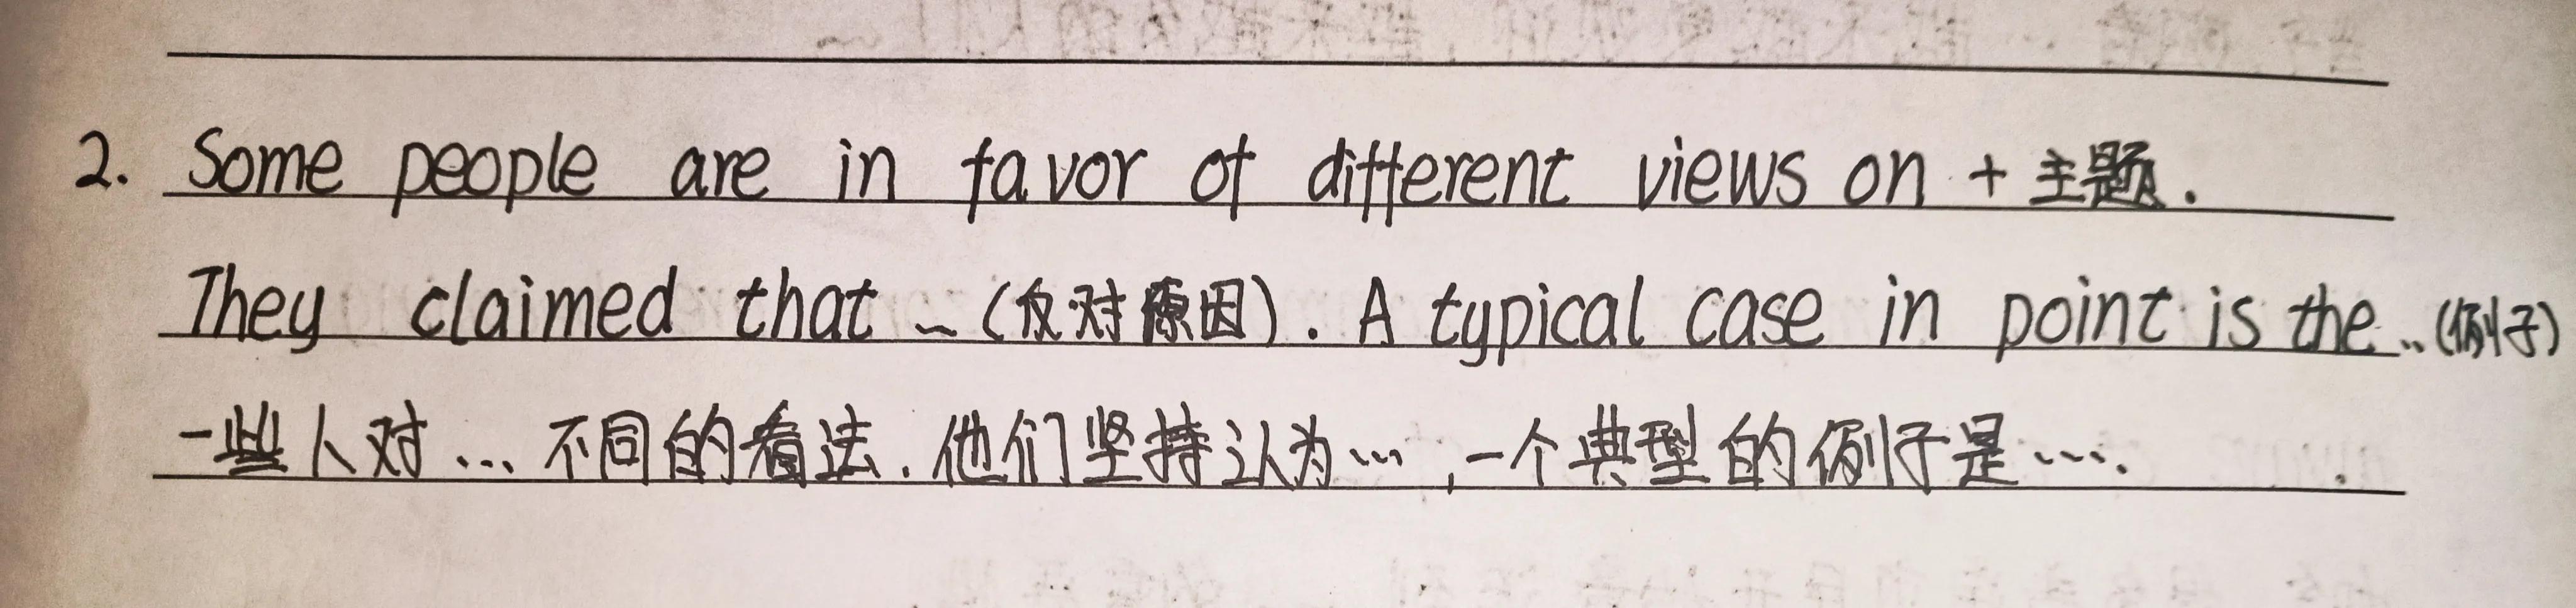 2. Some people are in favor of different views on + 主题.
They claimed that ... (反对原因). A typical case in point is the ... (例子)
一些人对 ... 不同的看法. 他们坚持认为 ... , 一个典型的例子是 ....